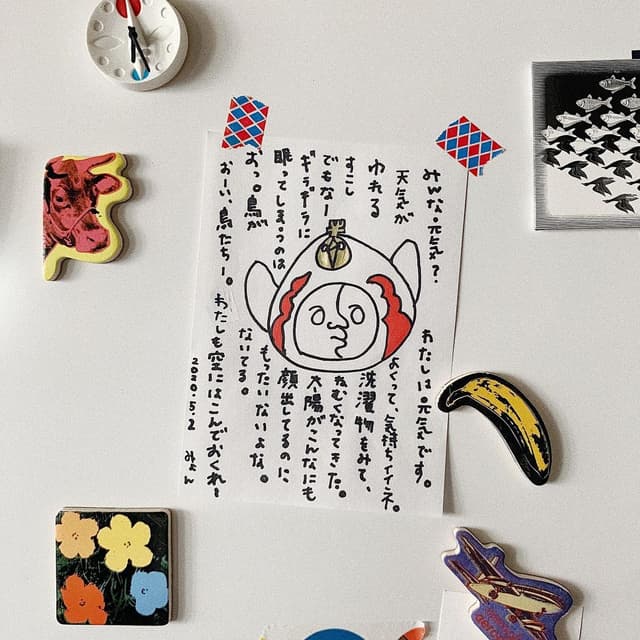 みんな。元気？ わたしは。元気です。
天気が よくって、気持ちイイネ。
ゆれる 洗濯物をみて、
すこし ねむくなってきた。
でもなー 太陽がこんなにも
ギラギラに 顔出してるのに、
眠ってしまうのは もったいないよな。
おっ。鳥が ないてる。
おーい、鳥たちー。 わたしも空にはこんでおくれ〜
2020.5.2 みょん